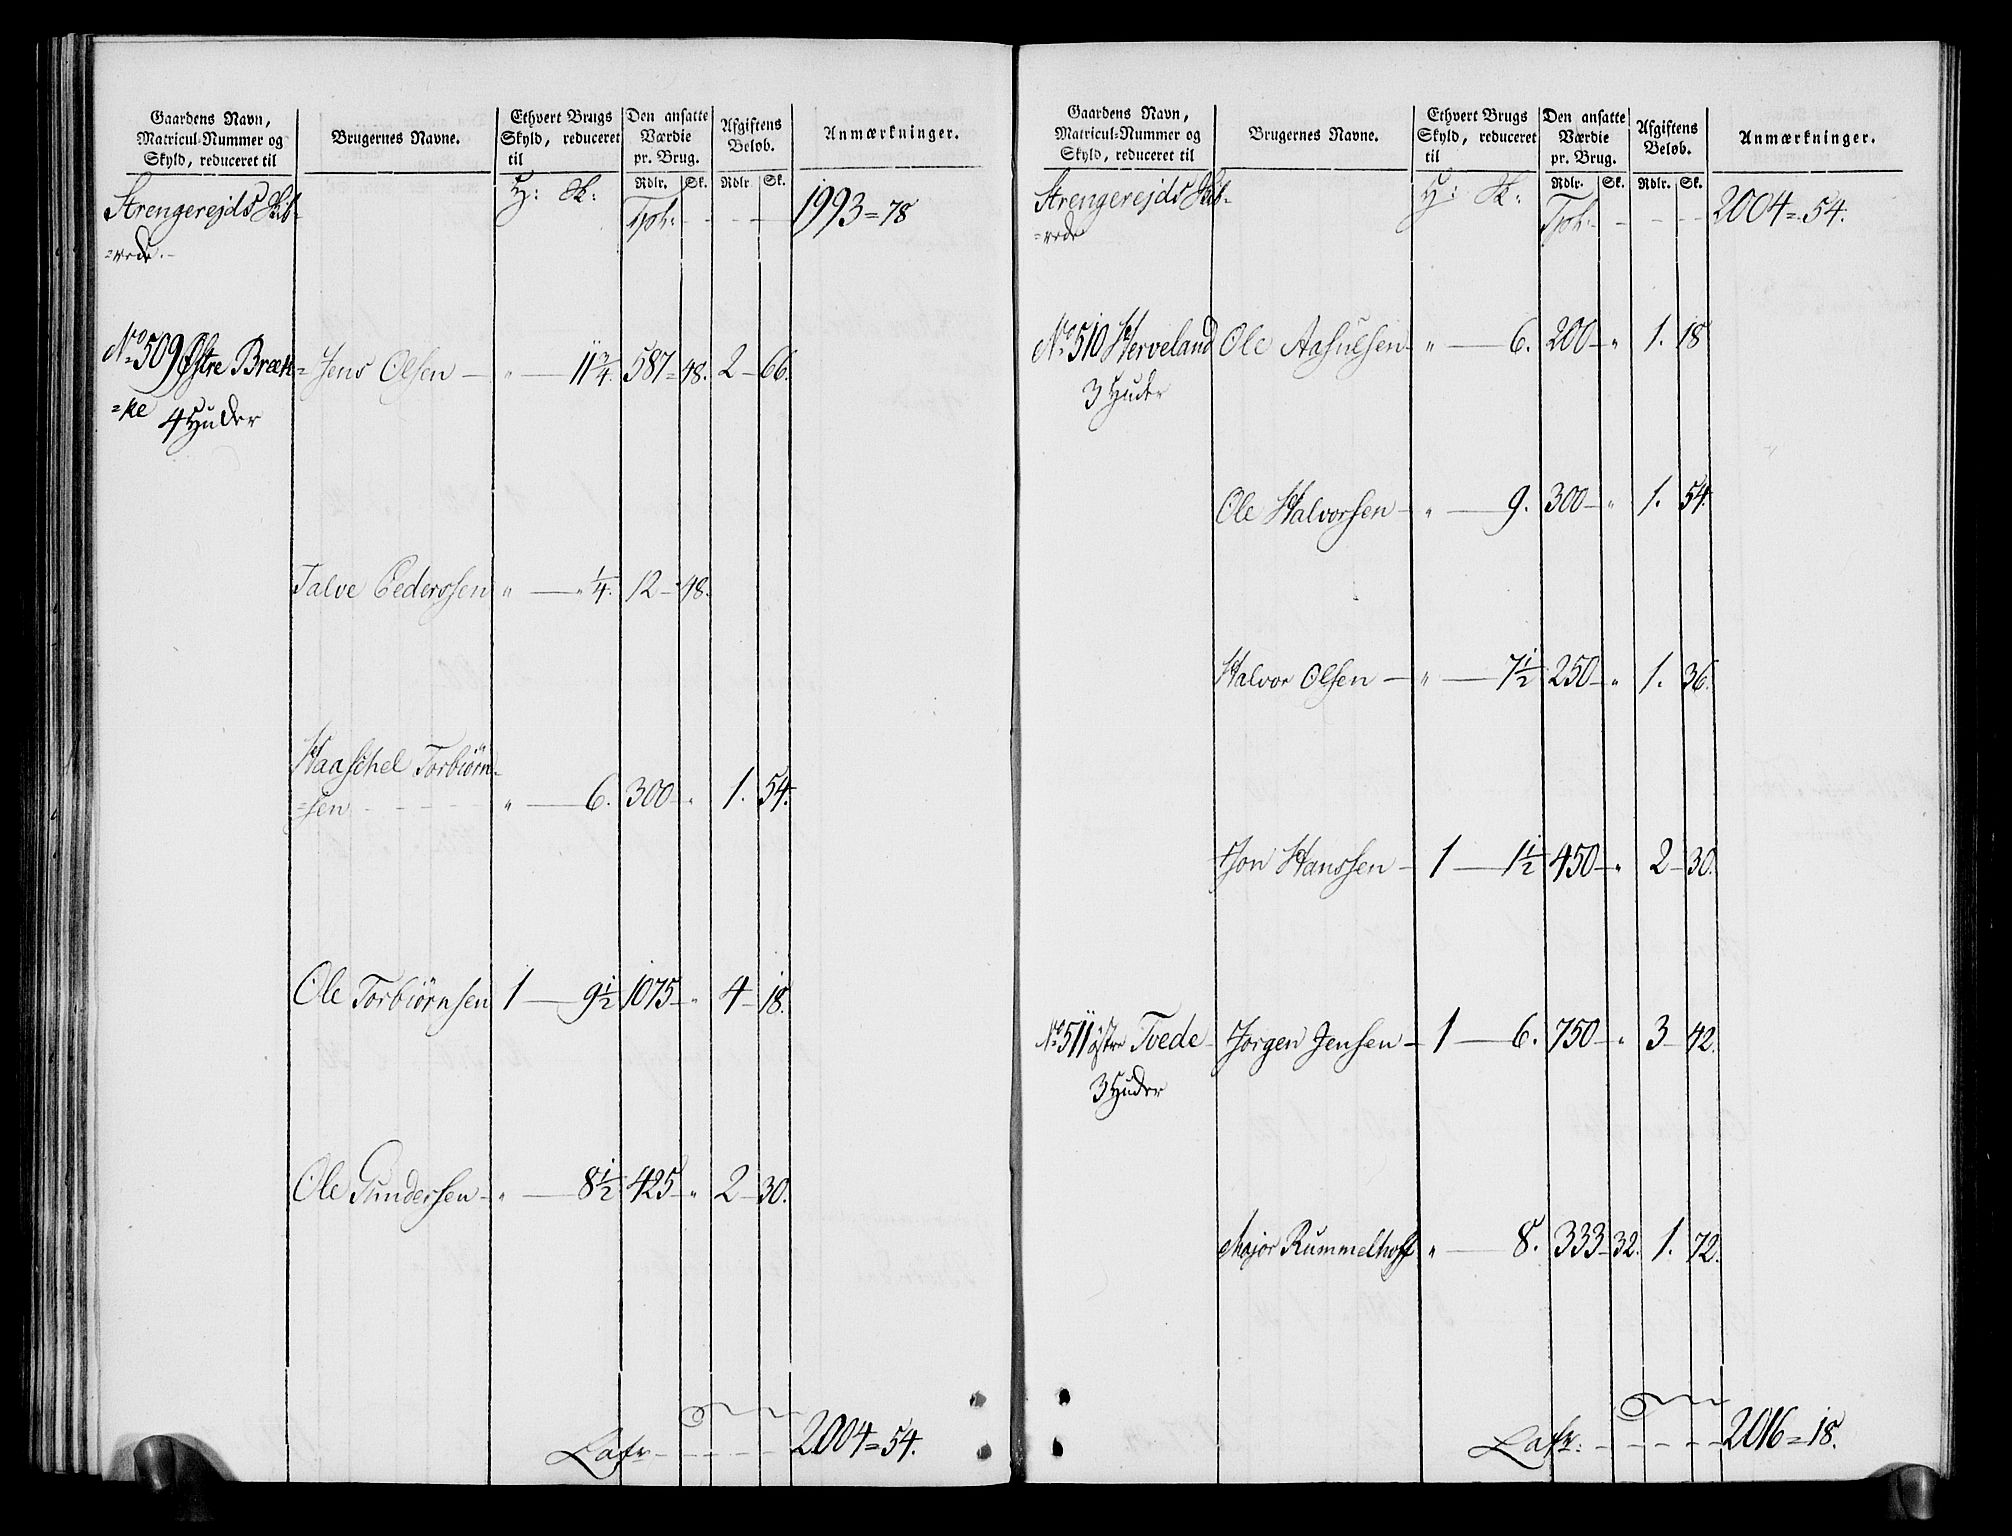 Gaardens Navn, Matricul-Nummer og Skyld, reduceret til | Brugernes Navne. | Ethvert Brugs Skyld, reduceret til | Den ansatte Værdie pr. Brug. | Afgiftens Beløb. | Anmærkninger.
H: Sk: | Rdlr. Sk. | Rdlr. Sk.
Strengerejds Skib- Tpt: - - - - 1993 = 78
=rede.
No 509 Østre Bræk= Jens Olsen — " — 11 3/4. 587 = 48. 2 — 66.
=ke 4 Huder
Talve Pederssen " — " 1/4. 12 - 48.
Haaschel Torbiørn=
=sen - - - - " — 6. 300 — " 1. 54.
Ole Torbiørnsen 1 — 9 1/2 1075 — " 4 — 18.
Ole Gundersen — " — 8 1/2 425 — " 2 — 30.
Lafr - - - - - 2004 = 54.
Gaardens Navn, Matricul-Nummer og Skyld, reduceret til | Brugernes Navne. | Ethvert Brugs Skyld, reduceret til | Den ansatte Værdie pr. Brug. | Afgiftens Beløb. | Anmærkninger.
H: Sk: | Rdlr. Sk. | Rdlr. Sk.
Strengerejds Skib- Tpt: - - - - 2004 = 54.
=rede
No 510 Herveland Ole Aasulsen — " — 6. 200 — " 1. 18
3 Huder
Ole Halvorsen — " — 9. 300 — " 1. 54.
Halvor Olsen — " — 7 1/2 250 — " 1. 36.
Jon Hanssen — 1 — 1 1/2 450 — " 2 — 30.
No 511 østre Tvede Jørgen Jensen — 1 — 6. 750 — " 3 — 42.
3 Huder
Major Rummelhoff " — 8. 333 — 32. 1. 72.
Lafr: - - - - - 2016 = 18.